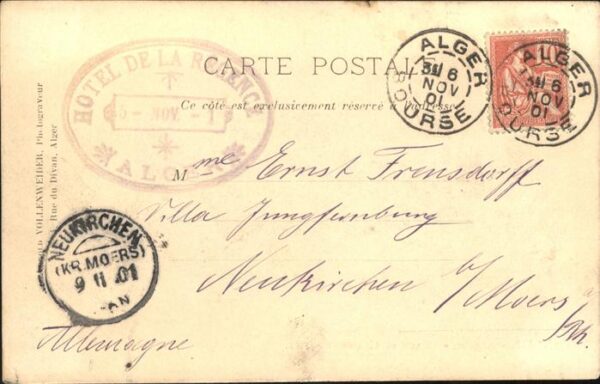 HOTEL DE LA RÉGENCE
5 - NOV. - 1
ALGER
CARTE POSTALE
Ce côté est exclusivement réservé à l'adresse
ALGER
6
NOV
01
BOURSE
ALGER
6
NOV
01
BOURSE
VOLLENWEIDER, Photograveur
Rue du Divan, Alger
Mme Ernst Frensdorff
Villa Jungfernburg
Neukirchen b/ Moers
Rh.
Allemagne
NEUKIRCHEN
(KR. MOERS)
9 11 01
AN